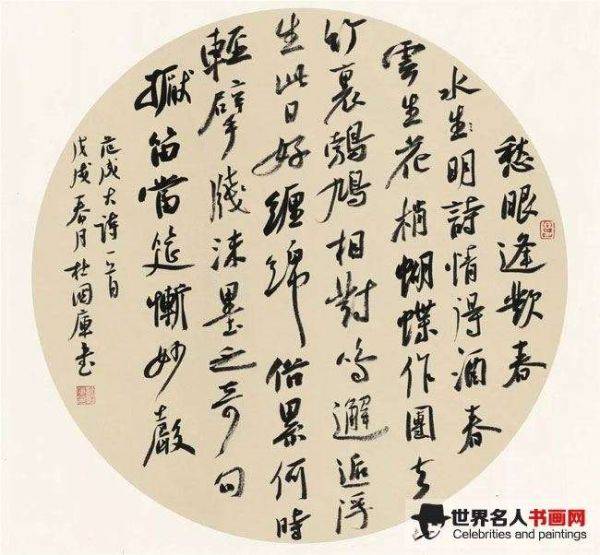 愁眼逢歡春
水生明詩情得酒春
雲生花梢蝴蝶作團去
竹裏鵓鳩相對鳴邂逅浮
生此日好纏綿俗累何時
輕擘牋沫墨乏奇句
擫笛當筵慚妙
范成大詩一首
戊戌春月杜国庫书
世界名人书画网
Celebrities and paintings